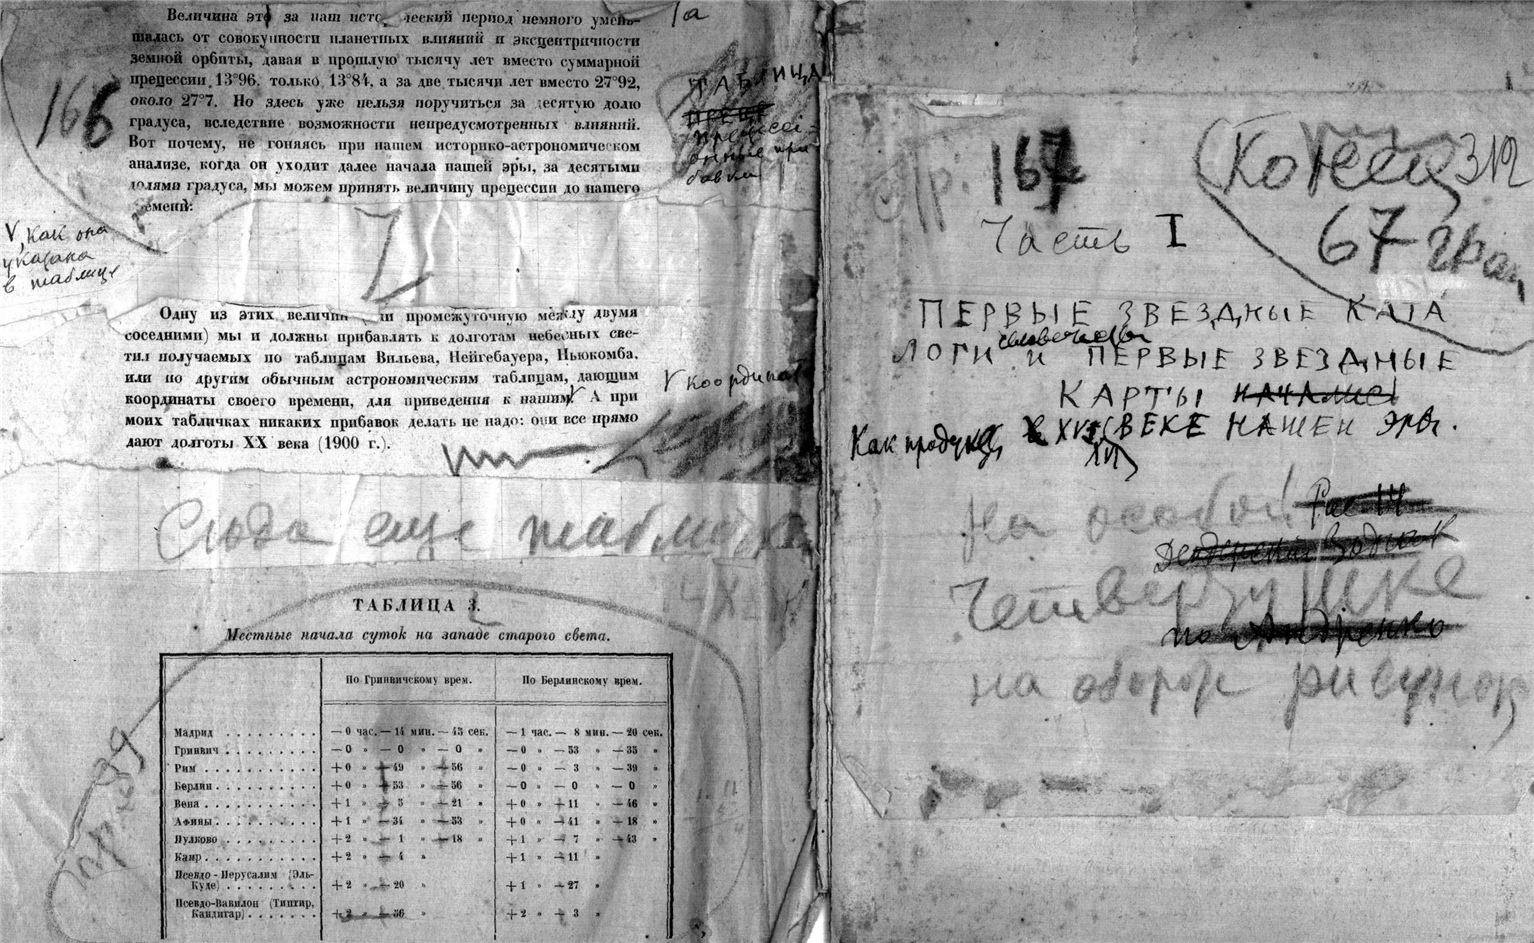 1а
Величина эта за наш исто ческий период немного умень-
шалась от совокупности планетных влияний и эксцентричности
земной орбиты, давая в прошлую тысячу лет вместо суммарной
прецессии 13°96, только 13°84, а за две тысячи лет вместо 27°92,
около 27°7. Но здесь уже нельзя поручиться за десятую долю
градуса, вследствие возможности непредусмотренных влияний.
Вот почему, не гоняясь при нашем историко-астрономическом
анализе, когда он уходит далее начала нашей эры, за десятыми
долями градуса, мы можем принять величину прецессии до нашего
времени:
166
ТАБЛИЦА
V как она
указана
в таблице
Одну из этих величин или промежуточную между двумя
соседними) мы и должны прибавлять к долготам небесных све-
тил получаемых по таблицам Вильева, Нейгебауера, Ньюкомба,
или по другим обычным астрономическим таблицам, дающим
координаты своего времени, для приведения к нашим V А при
моих табличках никаких прибавок делать не надо: они все прямо
дают долготы XX века (1900 г.).
V координат
Сюда еще таблица
ТАБЛИЦА 3.
Местные начала суток на западе старого света.
По Гринвичскому врем. По Берлинскому врем.
Мадрид . . . . . . . . — 0 час. — 14 мин. — 45 сек. — 1 час. — 8 мин. — 20 сек.
Гринвич . . . . . . . . — 0 » — 0 » — 0 » — 0 » — 53 » — 35 »
Рим . . . . . . . . . . + 0 » + 49 » + 56 » — 0 » — 3 » — 39 »
Берлин . . . . . . . . . + 0 » + 53 » + 36 » — 0 » — 0 » — 0 »
Вена . . . . . . . . . . + 1 » + 5 » + 21 » + 0 » + 11 » + 46 »
Афины . . . . . . . . . + 1 » + 34 » + 53 » + 0 » + 41 » + 18 »
Пулково . . . . . . . . + 2 » + 1 » + 18 » + 1 » + 7 » + 43 »
Каир . . . . . . . . . . + 2 » + 4 » + 1 » + 11 »
Псевдо-Иерусалим (Эль-
Кудс) . . . . . . . . + 2 » + 20 » + 1 » + 27 »
Псевдо-Вавилон (Типтир,
Кандигар) . . . . . . . + 2 » + 56 » + 2 » + 3 »
167
Конец
312
67 гран
Часть I
ПЕРВЫЕ ЗВЕЗДНЫЕ КАТА
ЛОГИ человечества И ПЕРВЫЕ ЗВЕЗДНЫЕ
КАРТЫ НАЧАЛИСЬ
Как продукт XVI ВЕКЕ НАШЕЙ ЭРЫ.
XVI
На особой
Дендерский Зодиак
четвертушке
по Андреенко
на обороте рисунок